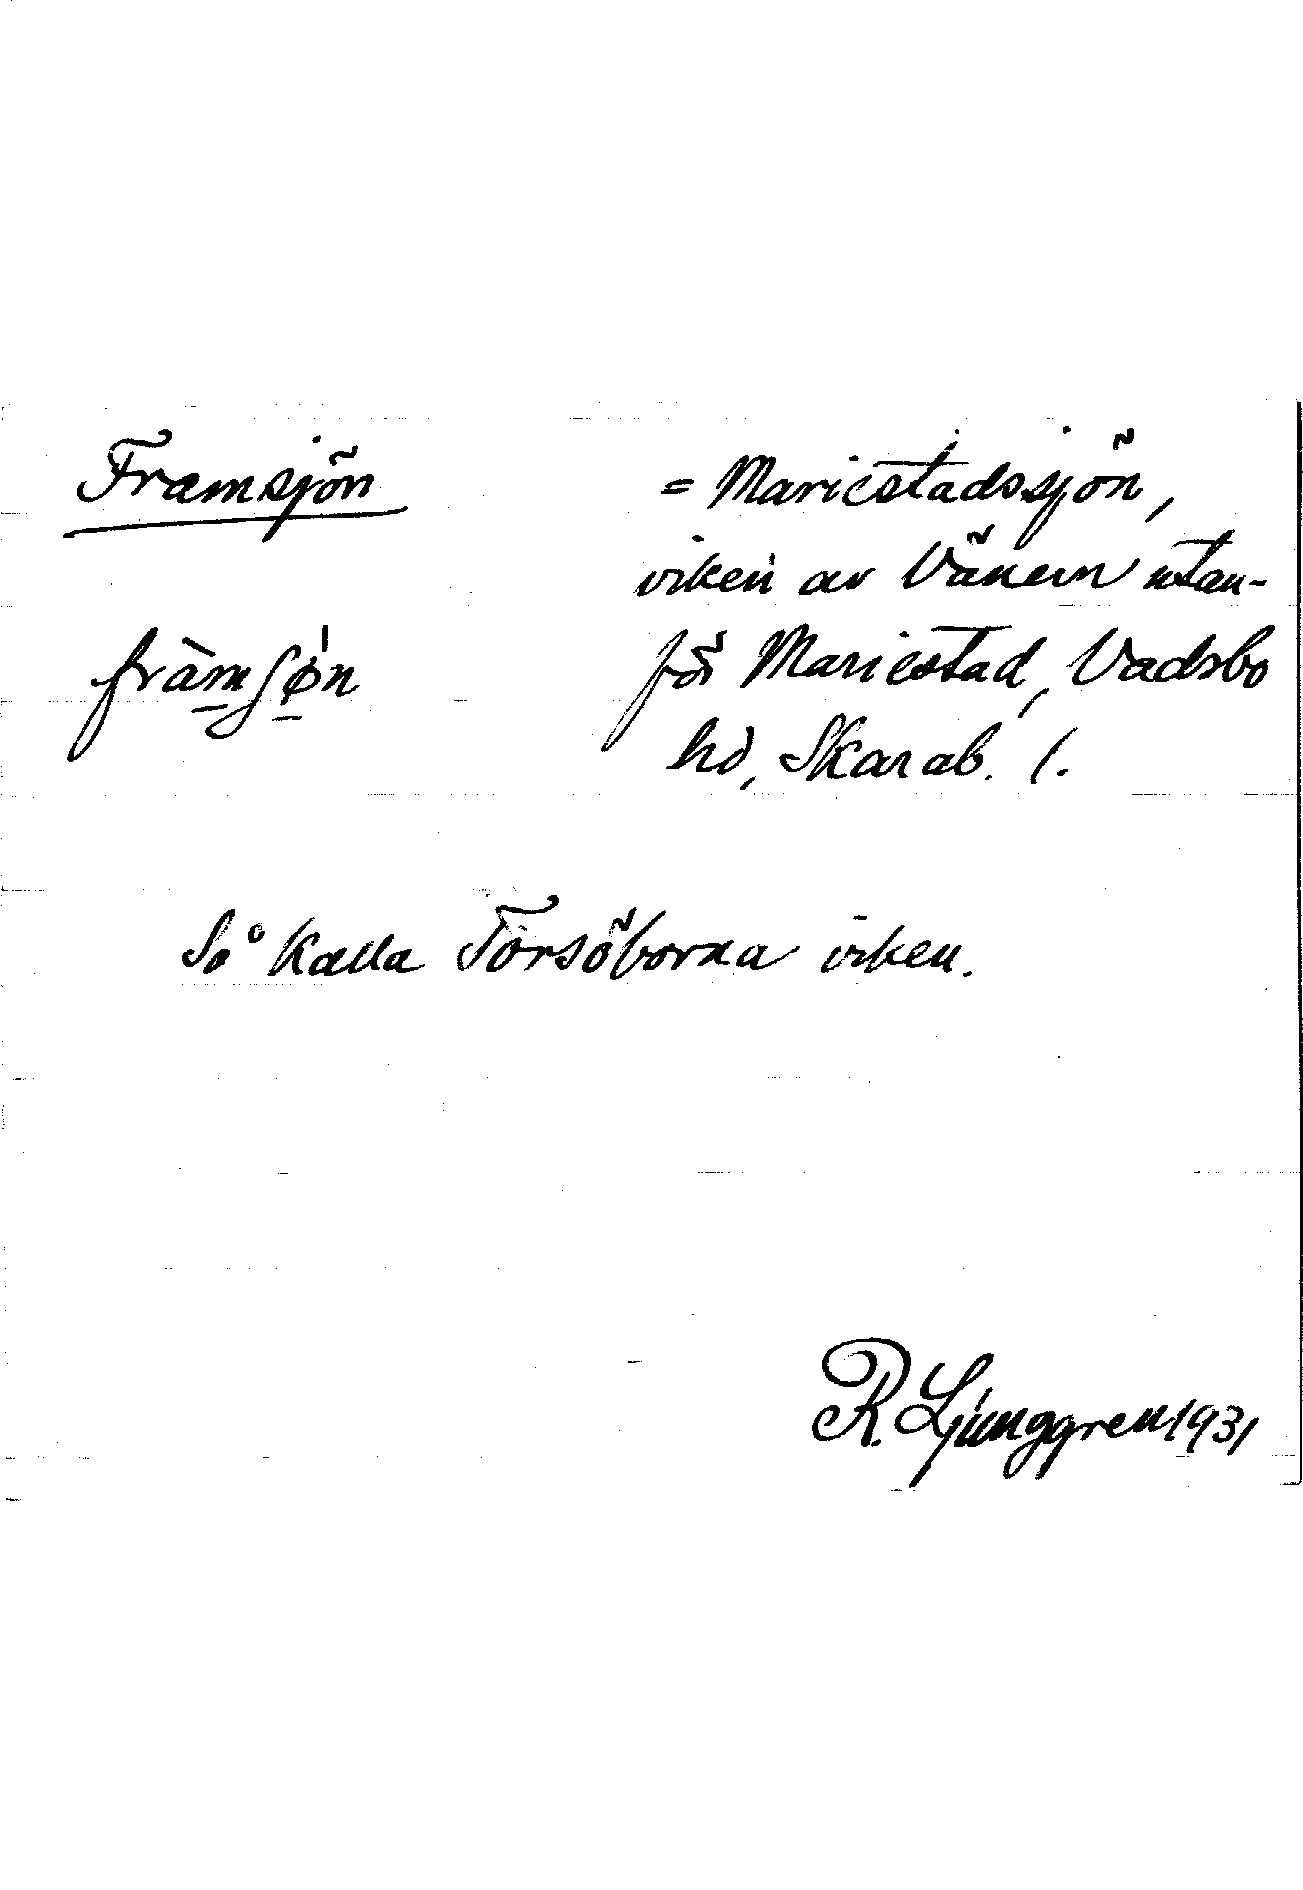 Framsjön = Mariestadssjön,
viken av Vänern utan-
för Mariestad, Vadsbo
hd, Skarab. l.
Så kalla Torsöborna viken.
R. Ljunggren 1931